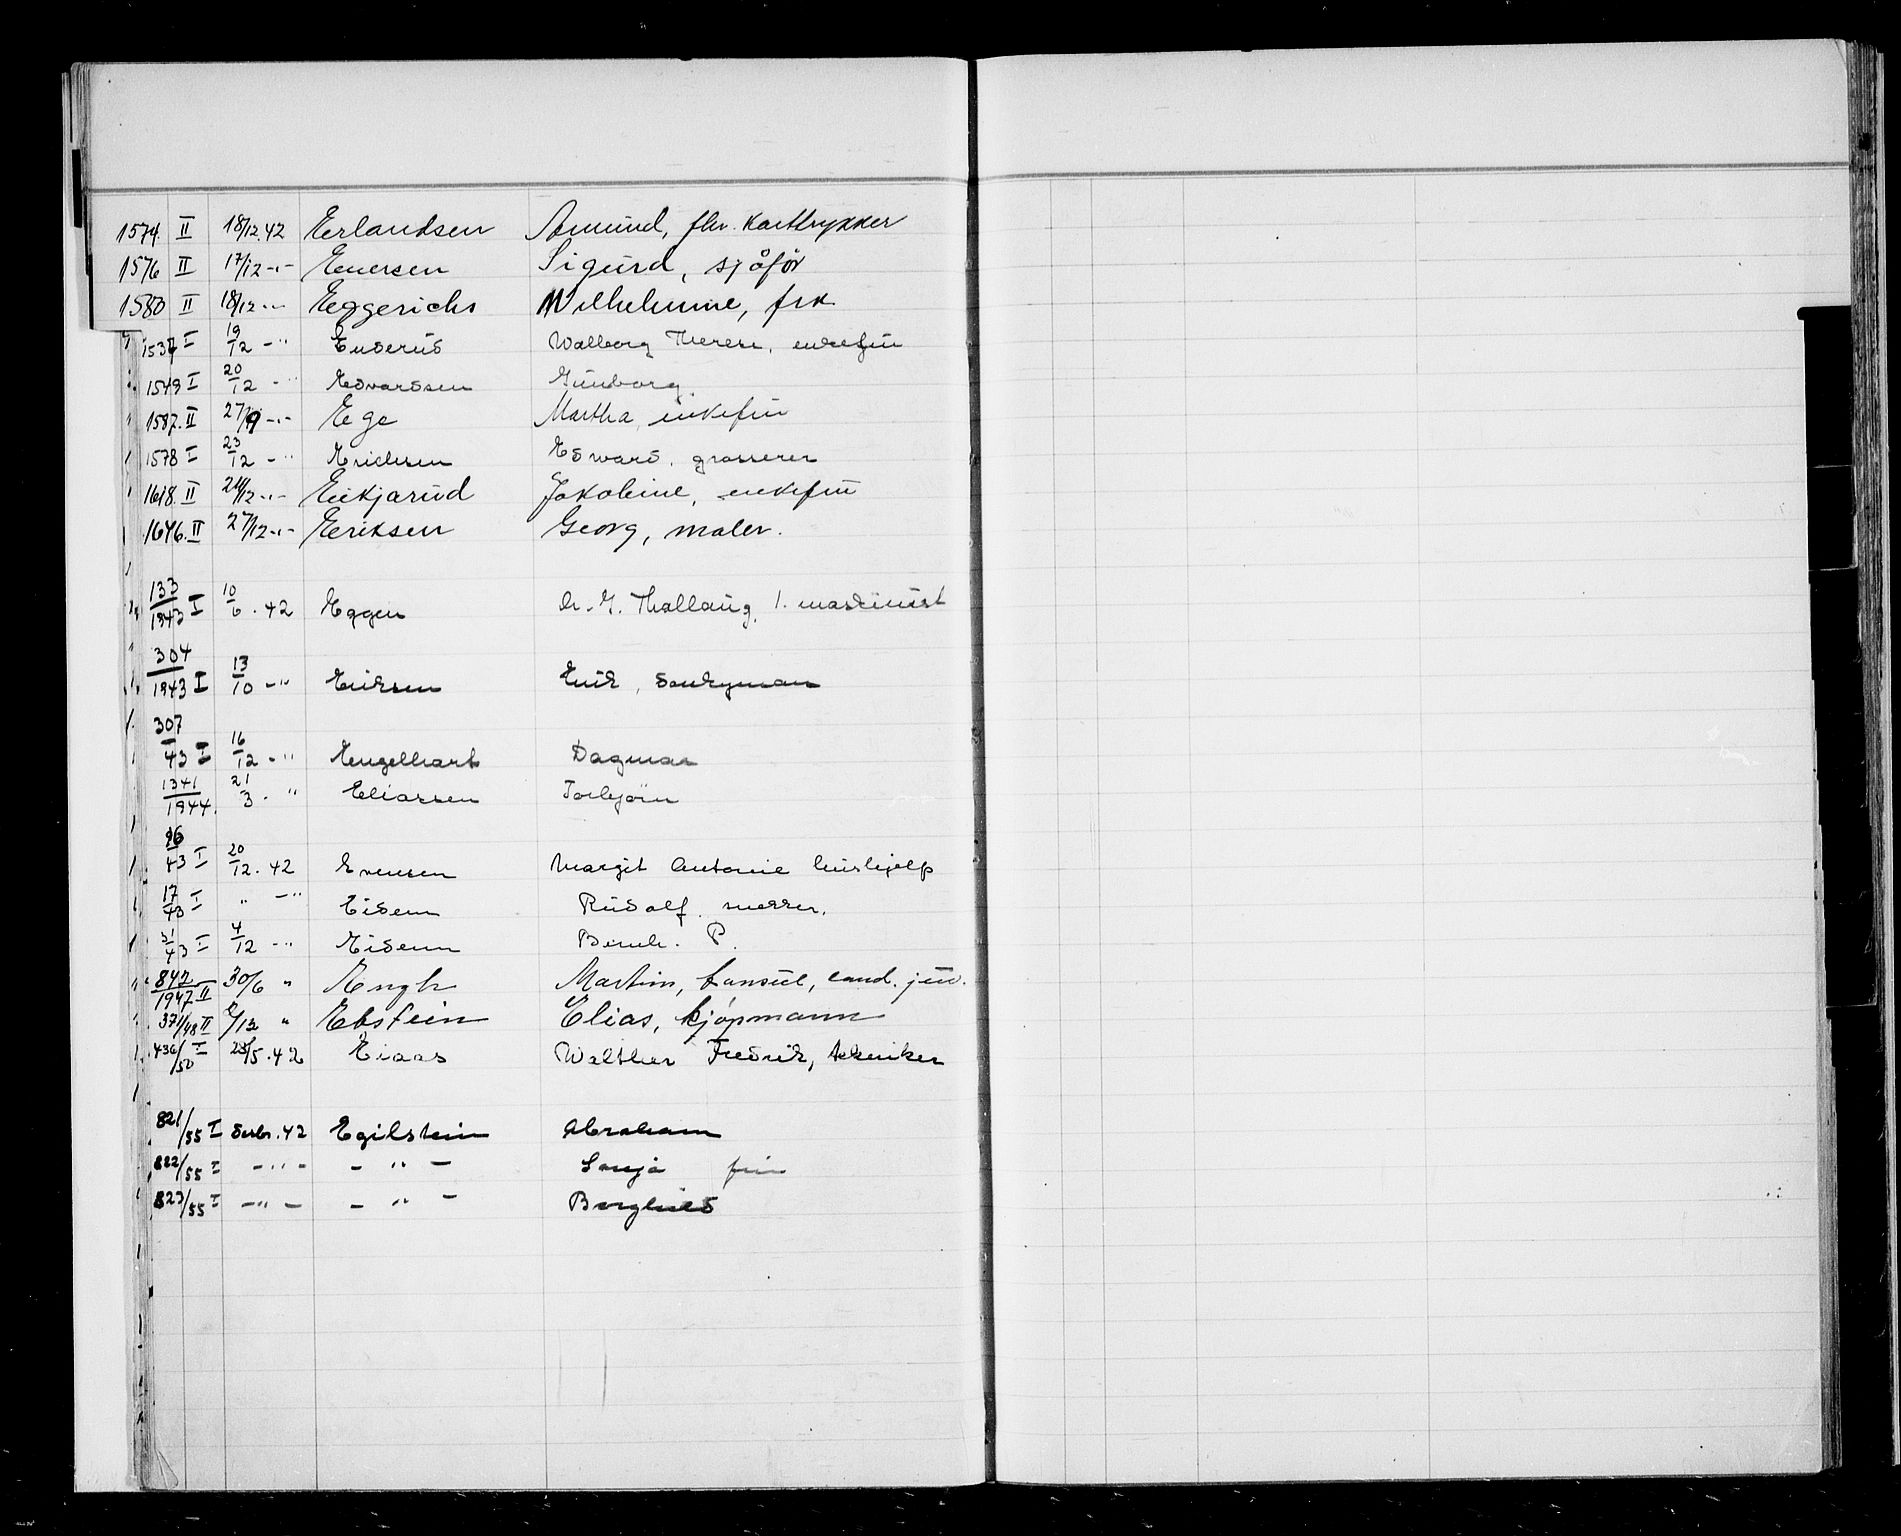 1574. II 18/12.42 Erlandsen Amund, fhv. karttrykker
1576 II 17/12 -"- Enersen Sigurd, sjåför
1580 II 18/12 -"- Eggerichs Wilhelmine, frk
I 19/12 -" Enderud Walborg Therese, enkefru
1549 I 20/12 -" Edvardsen Gunborg
1587. II -"- Ege Martha, enkefru
1578 I 23/12 -" Erichsen Edvard, grosserer
1618. II 24/12 -"- Eikjarud Jakobine, enkefru
1646. II 27/12 -"- Eriksen Georg, maler.
133/1943 I 10/6.42 Eggen Thallaug, 1. maskinist
304/1943 I 13/10 -" Eriksen Erik, donkyman
307/43 I 16/12 -" Engelhart Dagmar
1341/1944. 21/3. " Eliassen Torbjörn
16/43 I 20/12.42 Evensen Margit Antonie hushjelp
17/43 I " -" Eidem Rudolf.
31/43 I 4/12 -" Eidem Bernh. P.
842/1947 II 30/6 " Engh Martin, konsul, cand. jur.
371/48 II /12 " Ebstein Elias, kjøpmann
436/50 I 28/5.42 Eiaas Walther Fredrik, tekniker
821/55 I desbr.42 Egilstein Abraham
822/55 I -"- - " - Sonja fru
823/55 I -"- - " - Borghild